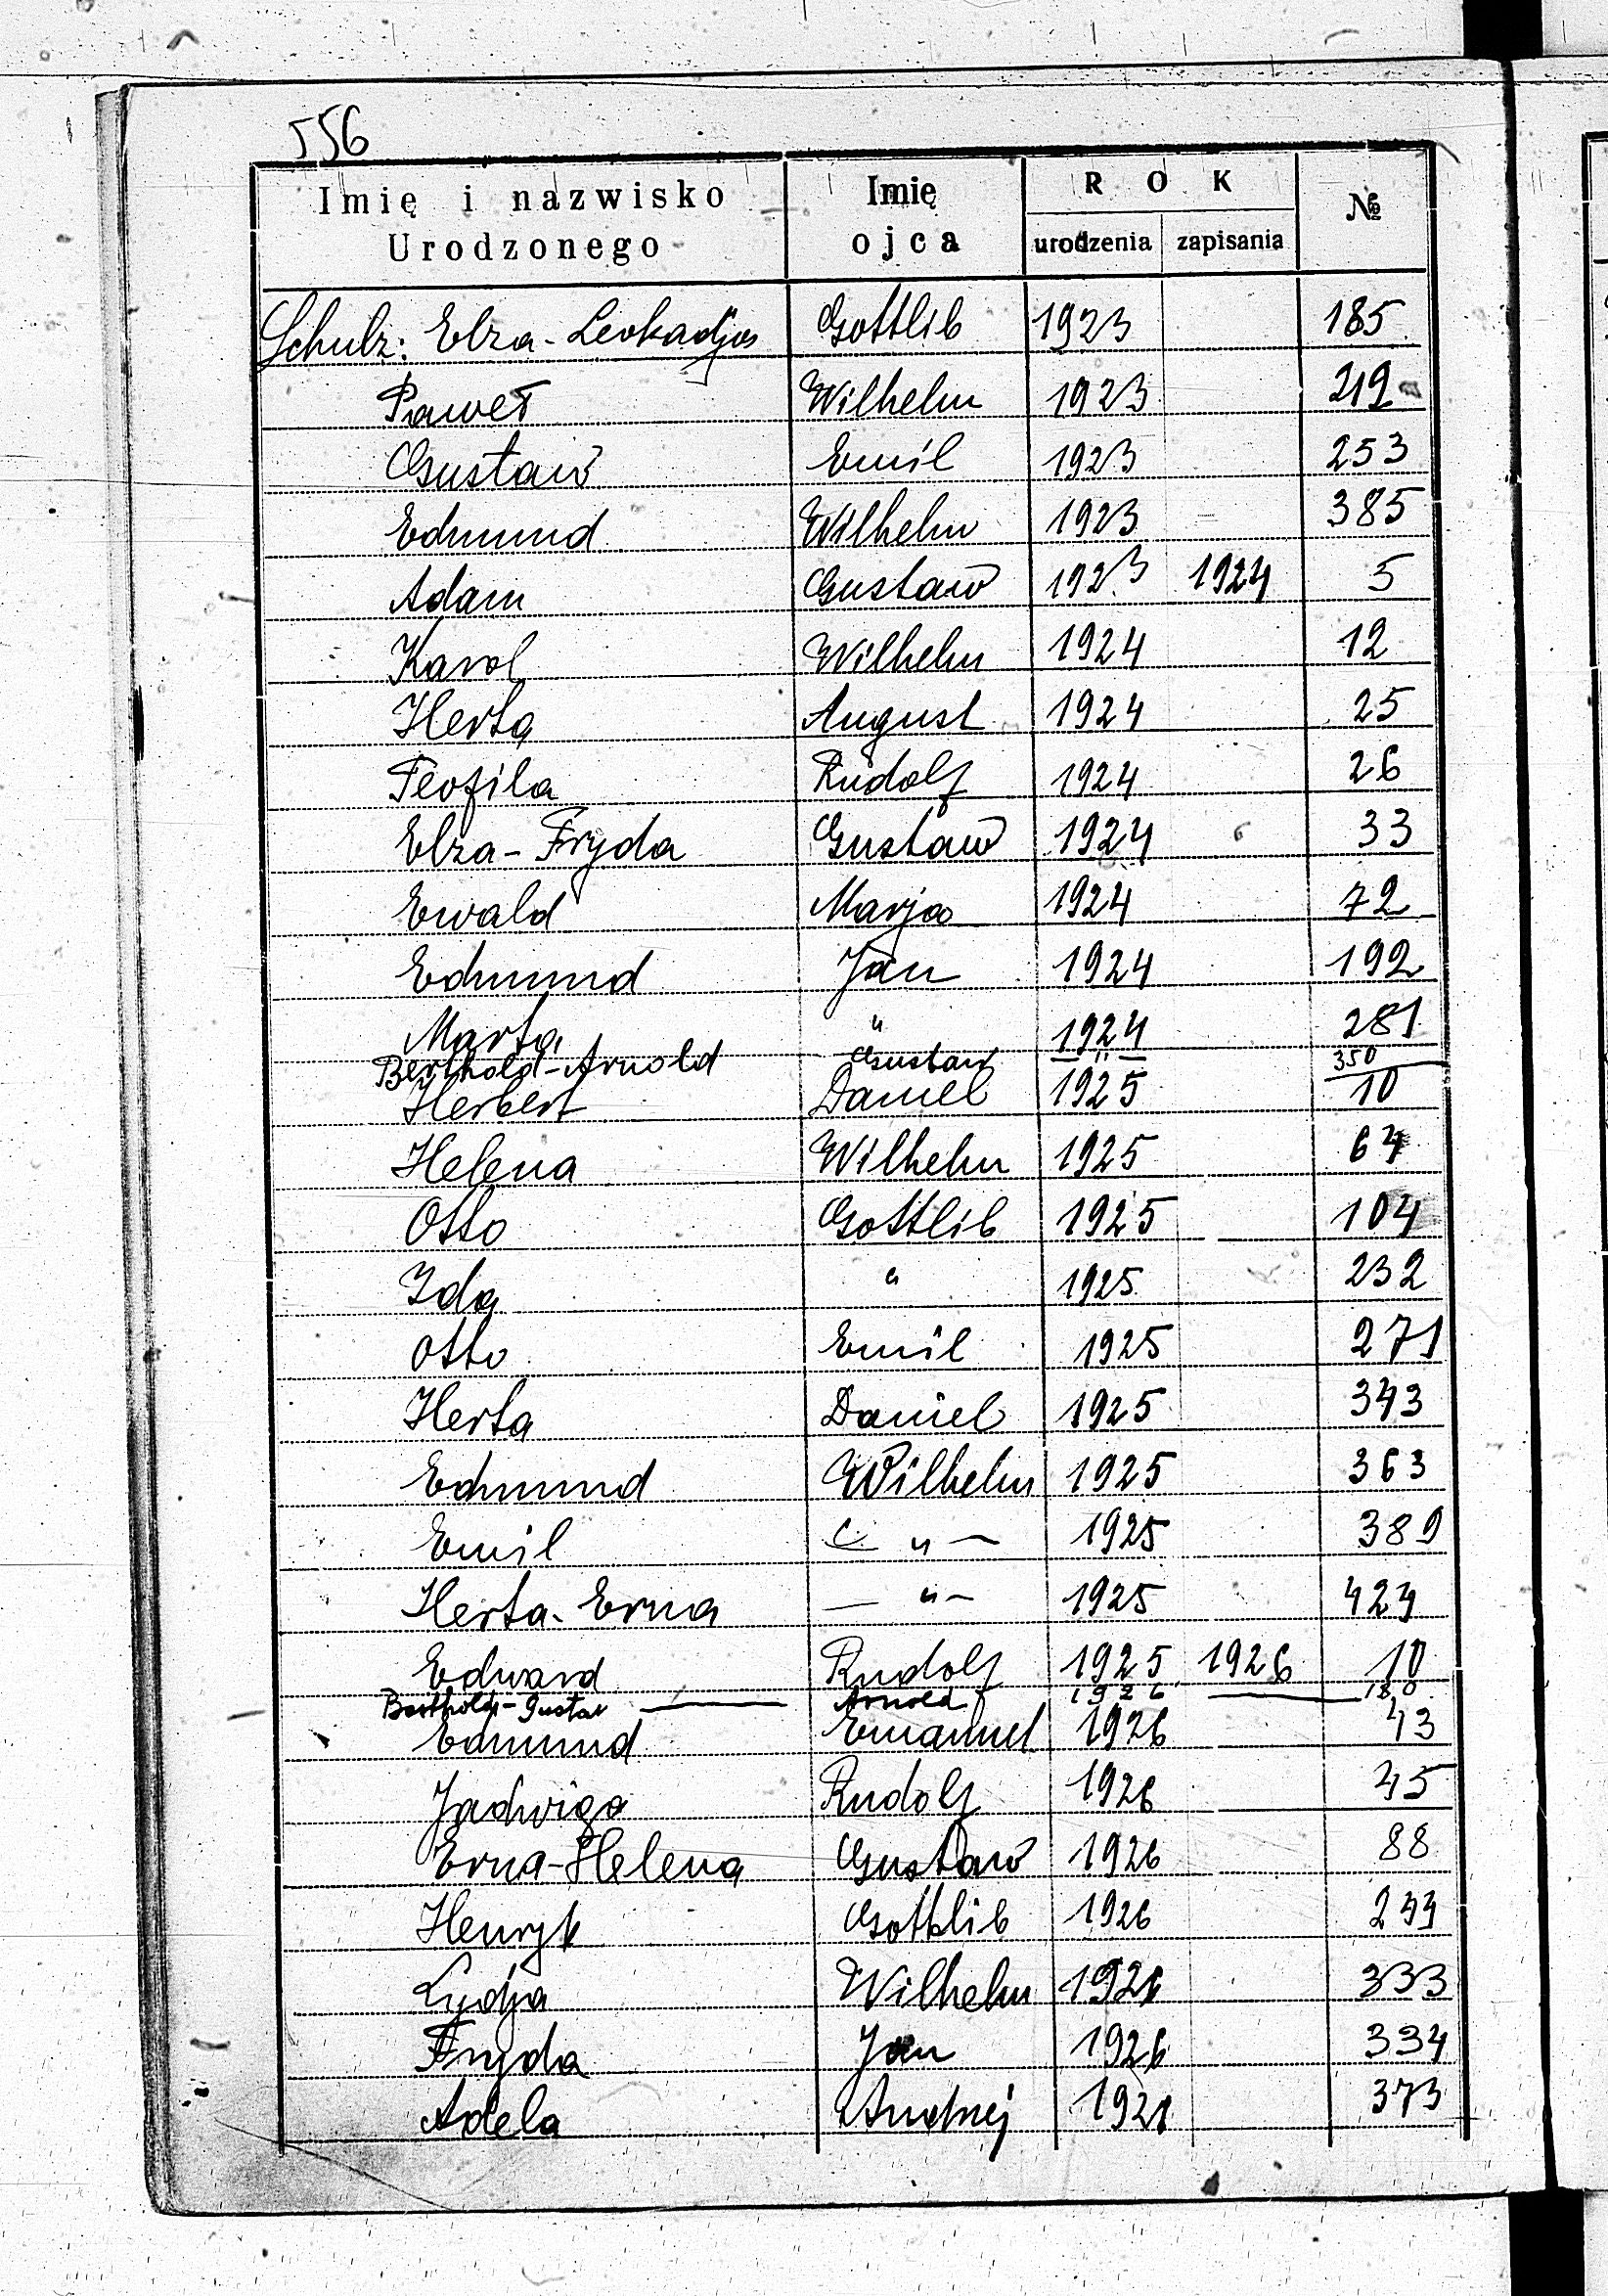 556
Imię i nazwisko Urodzonego Imię ojca ROK urodzenia zapisania №
Schulz: Elza-Leokadja Gottlib 1923 185
Paweł Wilhelm 1923 219
Gustaw Emil 1923 253
Edmund Wilhelm 1923 385
Adam Gustaw 1923 1924 5
Karol Wilhelm 1924 12
Herta August 1924 25
Teofila Rudolf 1924 26
Elza-Fryda Gustaw 1924 33
Ewald Marja 1924 72
Edmund Jan 1924 192
Marta " 1924 281
Berthold-Arnold Gustaw " 350
Herbert Daniel 1925 10
Helena Wilhelm 1925 64
Otto Gottlib 1925 104
Ida " 1925 232
Otto Emil 1925 271
Herta Daniel 1925 343
Edmund Wilhelm 1925 363
Emil — " — 1925 389
Herta-Erna — " — 1925 424
Edward Rudolf 1925 1926 10
Berthold-Gustav — Arnold 1926 — 180
Edmund Emanuel 1926 43
Jadwiga Rudolf 1926 45
Erna-Helena Gustaw 1926 88
Henryk Gottlib 1926 244
Lydja Wilhelm 1926 333
Fryda Jan 1926 334
Adela Andrzej 1926 373